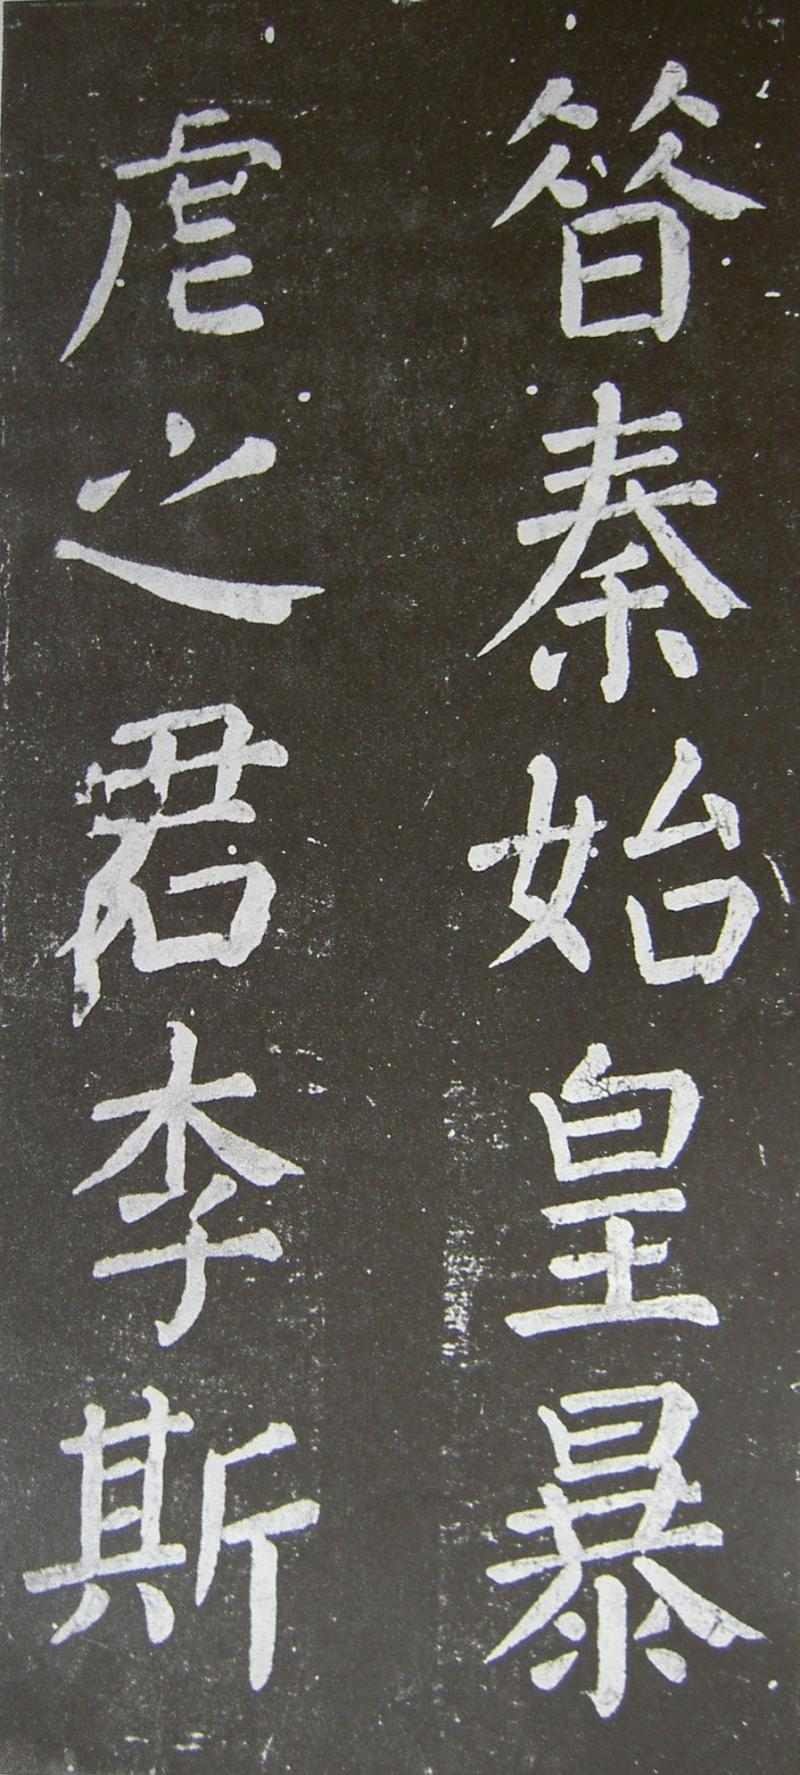 㫺秦始皇暴
虐之君李斯